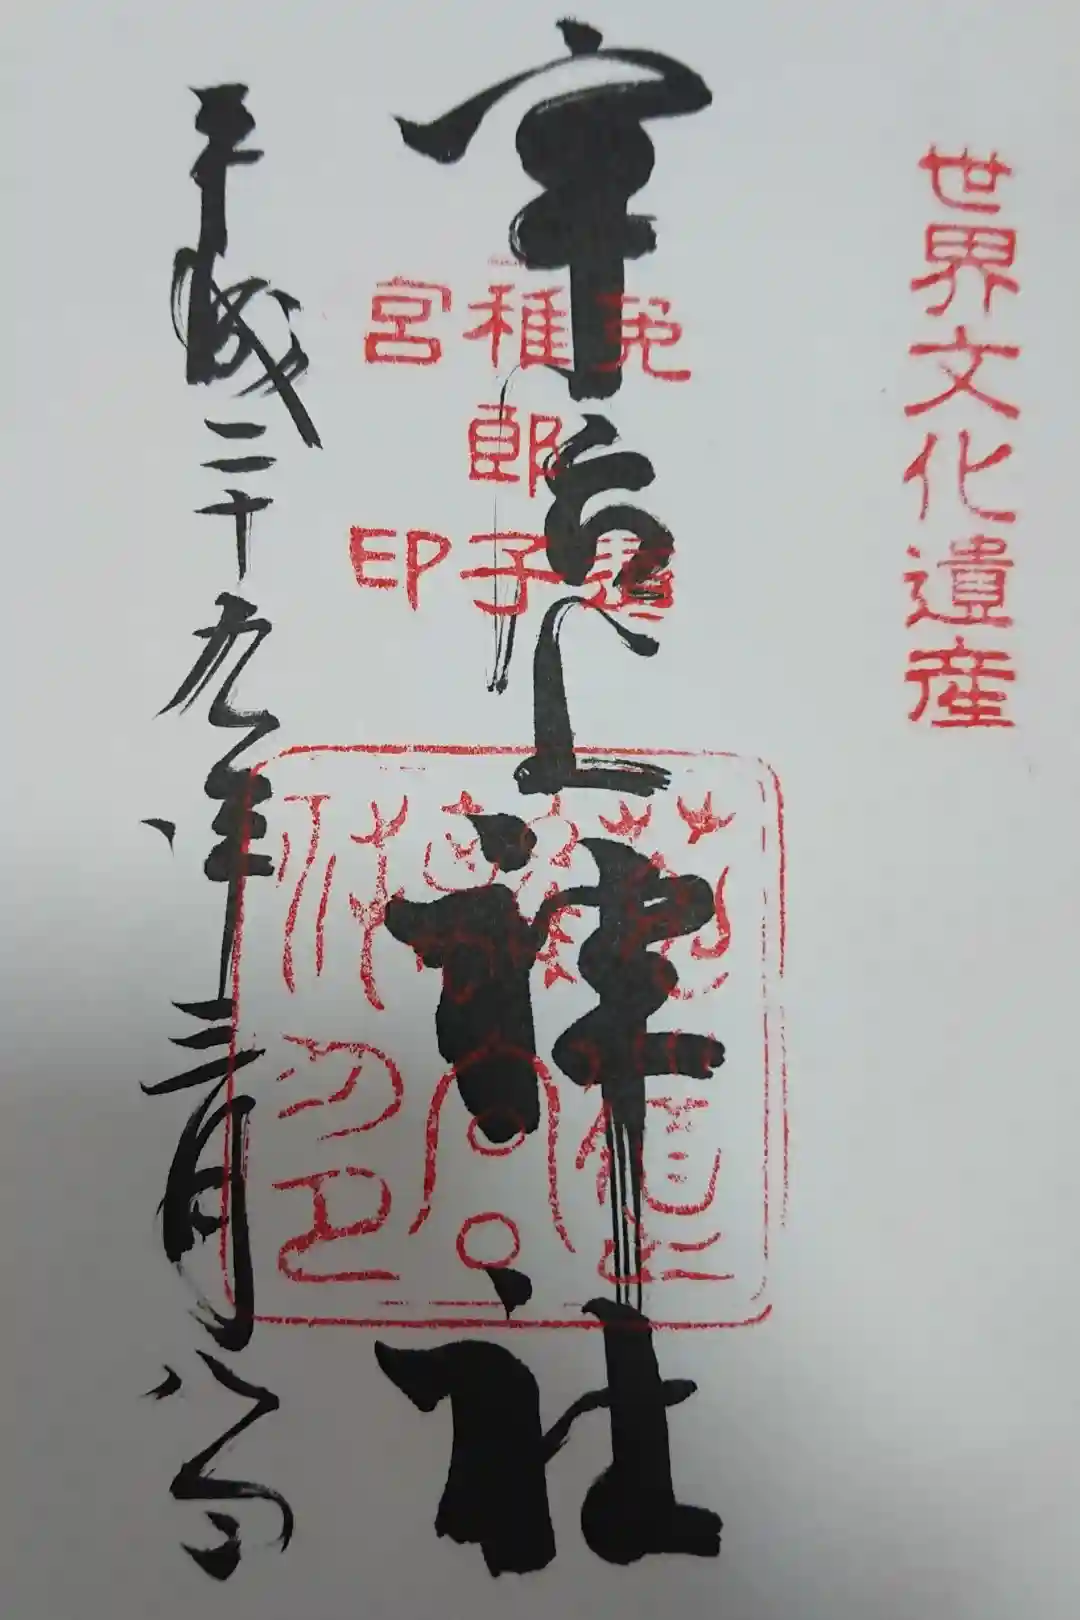 世界文化遺産
宇治上神社
兎道
稚郎子
宮印
平成二十九年三月八日